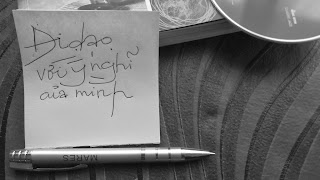 Đi dạo
với ý nghĩ
của mình
MARES